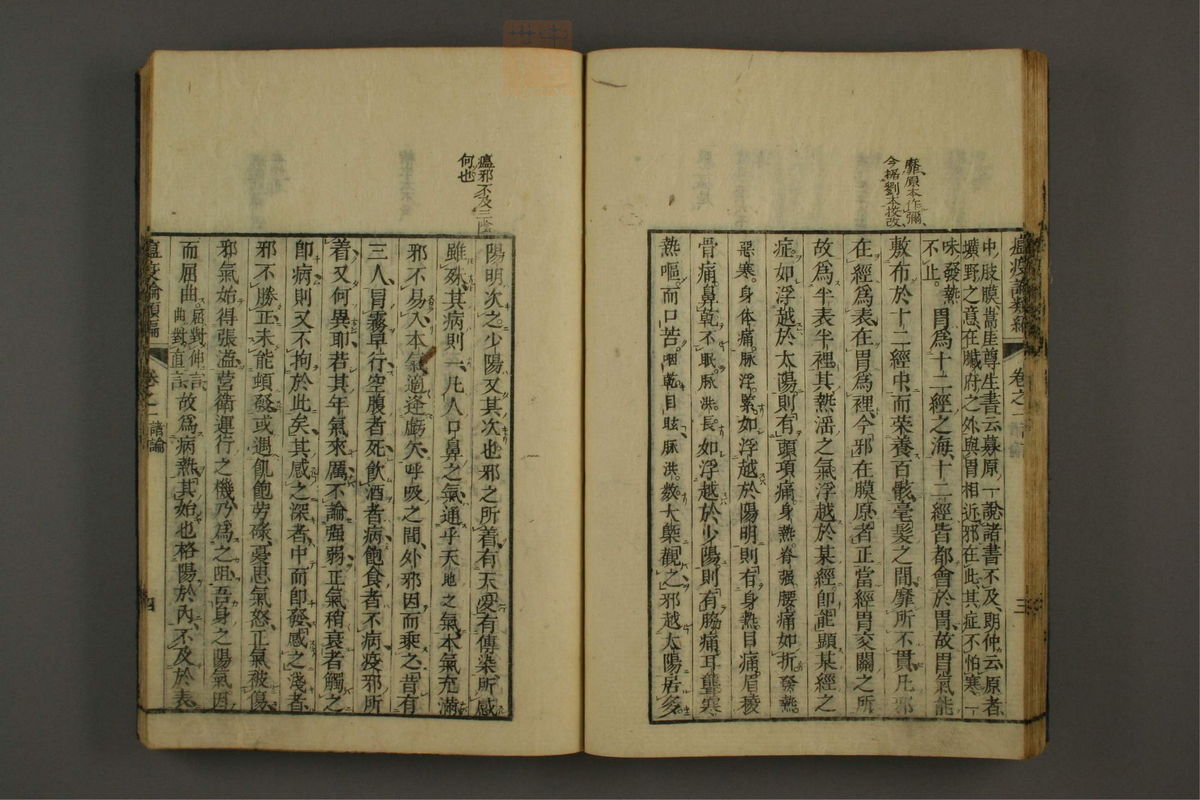 靡原本作彌
今据劉本挍改
瘟疫論類編 卷之一 諸論 三
中肢膜。嵩崖尊生書云募原一說諸書不及、朗仲云原者
壙野之意、在臟府之外、與胃相近、邪在此、其症不怕寒、一
味發熱
不止。胃爲十二經之海、十二經皆都會於胃、故胃氣能
敷布於十二經中、而荣養百骸、毫髪之間、靡所不貫、凡邪
在經爲表、在胃爲裡、今邪在膜原者、正當經胃交關之所
故爲半表半裡、其熱淫之氣、浮越於某經、即能顯某經之
症、如浮越於太陽、則有頭項痛。身熱脊强腰痛如折、發熱。
惡寒。身体痛。脉浮。緊。如浮越於陽明、則有身熱。目痛。眉稜
骨痛、鼻乾不眠。脉洪。長。如浮越於少陽、則有脇痛、耳聾寒
熱嘔。而口苦。咽乾目眩。脉洪。数。大槩觀之、邪越太陽居多
瘟邪不及三陰
何也
陽明次之。少陽又其次也。邪之所着、有天受、有傳染、所感
雖殊、其病則一、凡人口鼻之氣、通乎天地之氣、本氣充滿
邪不易入、本氣適逢虧欠、呼吸之間、外邪因而乘之、昔有
三人、冒霧早行、空腹者死、飲酒者病、飽食者不病、疫邪所
着、又何異耶、若其年氣來厲、不論强弱、正氣稍衰者、觸之
即病、則又不拘於此矣、其感之深者、中而即發、感之淺者
邪不勝正、未能頓發、或遇飢飽勞碌、憂思氣怒、正氣被傷
邪氣始得張溢、營衛運行之機、乃爲之阻、吾身之陽氣、因
而屈曲。屈對伸言
曲對直言、故爲病熱、其始也、格陽於內、不及於表
瘟疫論類編 卷之一 諸論 四